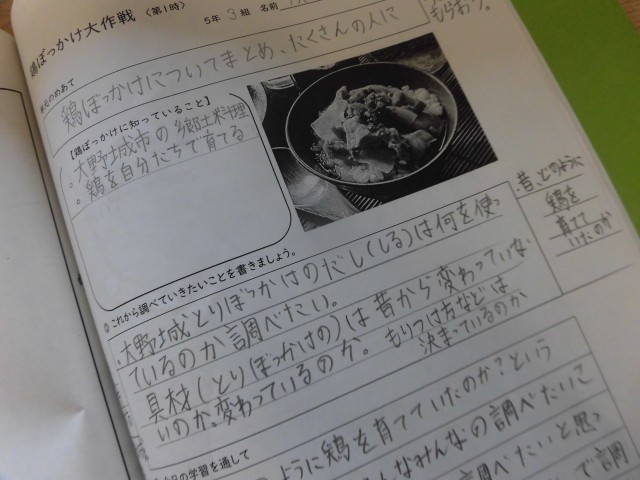 鶏ぼっかけ大作戦 〈第1時〉
5年 3組 名前
のめあて
鶏ぼっかけについてまとめ、たくさんの人に
もらおう。
【鶏ぼっかけに知っていること】
・大野城市の郷土料理
・鶏を自分たちで育てる
◎これから調べていきたいことを書きましょう。
大野城とりぼっかけのだし(しる)は何を使っ
ているのか調べたい。
具材(とりぼっかけの)は昔から変わっていな
いのか、変わっているのか。
もりつけ方などは
決まっているのか
・昔、どのように
鶏を
育てて
いたのか
の学習を通して
ように鶏を育てていたのか?という
んなみんなの調べたいこ
調べたいと思っ
で調